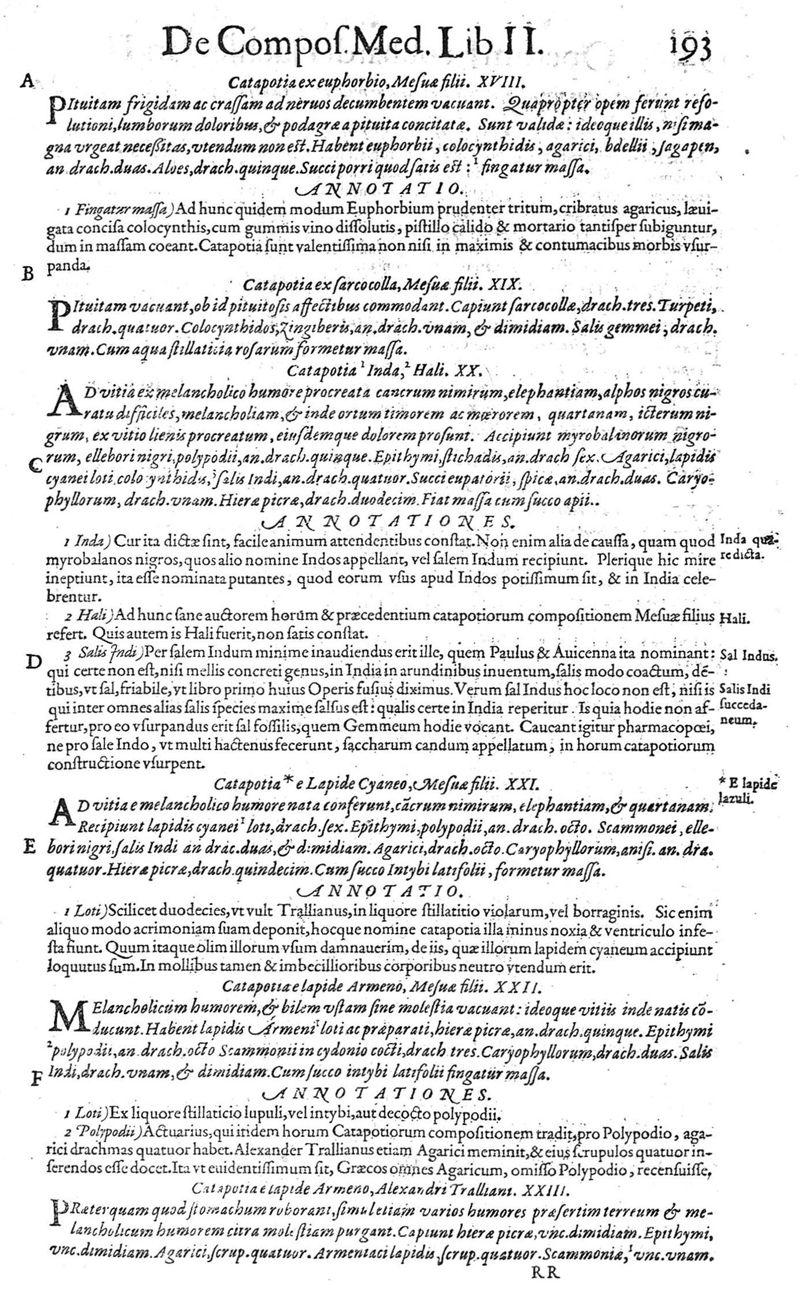 De Compoſ. Med. Lib II. 193
A
Catapotia ex euphorbio, Meſuæ filii. XVIII.
PItuitam frigidam ac craſſam ad neruos decumbentem vacuant. Quapropter opem ferunt reſo-
lutioni, lumborum doloribus, & podagræ a pituita concitatæ. Sunt validæ: ideoque illis, niſi ma-
gna vrgeat neceßitas, vtendum non eſt. Habent euphorbii, colocynthidis, agarici, bdellii, ſagapen,
an. drach. duas. Aloes, drach. quinque. Succi porri quod ſatis eſt: ¹ fingatur maſſa.
ANNOTATIO.
1 Fingatur maſſa) Ad hunc quidem modum Euphorbium prudenter tritum, cribratus agaricus, læui-
gata conciſa colocynthis, cum gummis vino diſſolutis, piſtillo calido & mortario tantiſper ſubiguntur,
dum in maſſam coeant. Catapotia ſunt valentiſſima non niſi in maximis & contumacibus morbis vſur-
panda.
B
Catapotia ex ſarcocolla, Meſuæ filii. XIX.
PItuitam vacuant, ob id pituitoſis affectibus commodant. Capiunt ſarcocollæ, drach. tres. Turpeti,
drach. quatuor. Colocynthidos, Zingiberis, an. drach. vnam, & dimidiam. Salis gemmei, drach.
vnam. Cum aqua ſtillaticia roſarum formetur maſſa.
Catapotia ¹ Inda, ² Hali. XX.
AD vitia ex melancholico humore procreata cancrum nimirum, elephantiam, alphos nigros cu-
ratu difficiles, melancholiam, & inde ortum timorem ac mœrorem, quartanam, icterum ni-
grum, ex vitio lienis procreatum, eiuſdemque dolorem proſunt. Accipiunt myrobalinorum nigro-
C
rum, ellebori nigri, polypodii, an. drach. quinque. Epithymi, ſtichadis, an. drach ſex. Agarici, lapidis
cyanei loti, colocynthidis, ³ ſalis Indi, an. drach. quatuor. Succi eupatorii, ſpicæ, an. drach. duas. Caryo-
phyllorum, drach. vnam. Hieræ picræ, drach. duodecim. Fiat maſſa cum ſucco apii.
ANNOTATIONES.
1 Inda) Cur ita dictæ ſint, facile animum attendentibus conſtat. Non enim alia de cauſſa, quam quod
Inda qua-
re dicta.
myrobalanos nigros, quos alio nomine Indos appellant, vel ſalem Indum recipiunt. Plerique hic mire
ineptiunt, ita eſſe nominata putantes, quod eorum vſus apud Indos potiſſimum ſit, & in India cele-
brentur.
2 Hali) Ad hunc ſane auctorem horum & præcedentium catapotiorum compoſitionem Meſuæ filius
Hali.
refert. Quis autem is Hali fuerit, non ſatis conſtat.
D
3 Salis Indi) Per ſalem Indum minime inaudiendus erit ille, quem Paulus & Auicenna ita nominant:
Sal Indus.
qui certe non eſt, niſi mellis concreti genus, in India in arundinibus inuentum, ſalis modo coactum, dē-
tibus, vt ſal, friabile, vt libro primo huius Operis fuſius diximus. Verum ſal Indus hoc loco non eſt, niſi is
Salis Indi
ſucceda-
neum.
qui inter omnes alias ſalis ſpecies maxime ſalſus eſt: qualis certe in India reperitur. Is quia hodie non af-
fertur, pro eo vſurpandus erit ſal foſſilis, quem Gemmeum hodie vocant. Caueant igitur pharmacopœi,
ne pro ſale Indo, vt multi hactenus fecerunt, ſaccharum candum appellatum, in horum catapotiorum
conſtructione vſurpent.
Catapotia * e Lapide Cyaneo, Meſuæ filii. XXI.
* E lapide
lazuli.
AD vitia e melancholico humore nata conferunt, cācrum nimirum, elephantiam, & quartanam.
Recipiunt lapidis cyanei ¹ loti, drach. ſex. Epithymi, polypodii, an. drach. octo. Scammonei, elle-
E
bori nigri, ſalis Indi an drac. duas, & dimidiam. Agarici, drach. octo. Caryophyllorum, aniſi. an. dra.
quatuor. Hieræ picræ, drach. quindecim. Cum ſucco Intybi latifolii, formetur maſſa.
ANNOTATIO.
1 Loti) Scilicet duodecies, vt vult Trallianus, in liquore ſtillatitio violarum, vel borraginis. Sic enim
aliquo modo acrimoniam ſuam deponit, hocque nomine catapotia illa minus noxia & ventriculo infe-
ſta fiunt. Quum itaque olim illorum vſum damnauerim, de iis, quæ illorum lapidem cyaneum accipiunt
loquutus ſum. In mollibus tamen & imbecillioribus corporibus neutro vtendum erit.
Catapotia e lapide Armeno, Meſuæ filii. XXII.
MElancholicum humorem, & bilem vſtam ſine moleſtia vacuant: ideoque vitiis inde natis cō-
ducunt. Habent lapidis Armeni ¹ loti ac præparati, hieræ picræ, an. drach. quinque. Epithymi
² polypodii, an. drach. octo Scammonii in cydonio cocti, drach tres. Caryophyllorum, drach. duas. Salis
F
Indi, drach. vnam, & dimidiam. Cum ſucco intybi latifolii fingatur maſſa.
ANNOTATIONES.
1 Loti) Ex liquore ſtillaticio lupuli, vel intybi, aut decocto polypodii.
2 Polypodii) Actuarius, qui itidem horum Catapotiorum compoſitionem tradit, pro Polypodio, aga-
rici drachmas quatuor habet. Alexander Trallianus etiam Agarici meminit, & eius ſcrupulos quatuor in-
ferendos eſſe docet. Ita vt euidentiſſimum ſit, Græcos omnes Agaricum, omiſſo Polypodio, recenſuiſſe.
Catapotia e lapide Armeno, Alexandri Tralliani. XXIII.
PRæterquam quod ſtomachum roborant, ſimul etiam varios humores præſertim terreum & me-
lancholicum humorem citra moleſtiam purgant. Capiunt hieræ picræ, vnc. dimidiam. Epithymi,
vnc. dimidiam. Agarici, ſcrup. quatuor. Armeniaci lapidis, ſcrup. quatuor. Scammoniæ, ¹ vnc. vnam.
RR